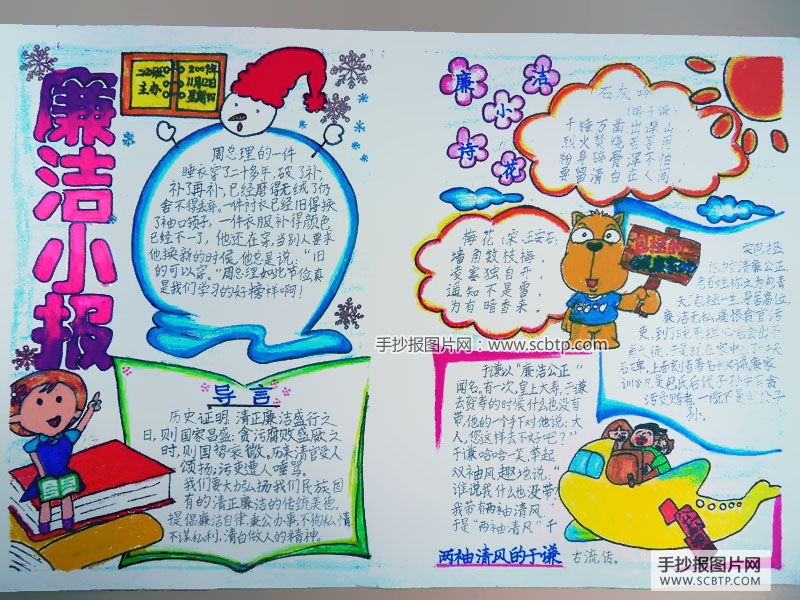 廉洁小报
主办
11月12日
星期四
周总理的一件
睡衣穿了二十多年,破了补,
补了再补,已经磨得无绒了仍
舍不得丢弃。一件衬衣已经旧得换
了袖口领子,一件衣服补得颜色
已经不一了,他还在穿,当别人要求
他换新的时候,他总是说:“旧
的可以穿。”周总理如此节俭真
是我们学习的好榜样啊!
导言
历史证明,清正廉洁盛行之
日,则国家昌盛;贪污腐败盛厥之
时,则国势衰微,历来清官受人
颂扬,污吏遭人唾骂。
我们要大力弘扬我们民族固
有的清正廉洁的传统美德,
提倡廉洁自律,秉公办事,不徇私情
不谋私利,清白做人的精神。
廉洁小诗花
石灰吟
千锤万凿出深山,
烈火焚烧若等闲
粉身碎骨浑不怕
要留清白在人间,
梅花(宋·王安石)
墙角数枝梅,
凌寒独自开,
遥知不是雪,
为有暗香来,
清廉公正,
天”包拯一生身居高位,
廉洁无私,痛恨贪官污
手抄报图片网:www.scbtp.com
于谦以“廉洁公正”
闻名。有一次,皇上大寿,于谦
去贺寿的时候什么也没有
带,他的一个手下对他说:大
人,您这样去不好吧??
于谦哈哈一笑,举起
双袖风趣地说,“
谁说我什么也没带?
我带有两袖清风
于是“两袖清风”千
古流传。
两袖清风的于谦
手抄报图片网
WWW.SCBTP.COM